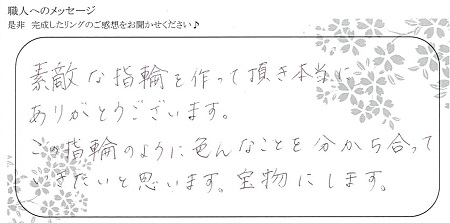 職人へのメッセージ
是非　完成したリングのご感想をお聞かせください♪
素敵な指輪を作って頂き本当に
ありがとうございます。
この指輪のように色んなことを分から合って
いきたいと思います。宝物にします。